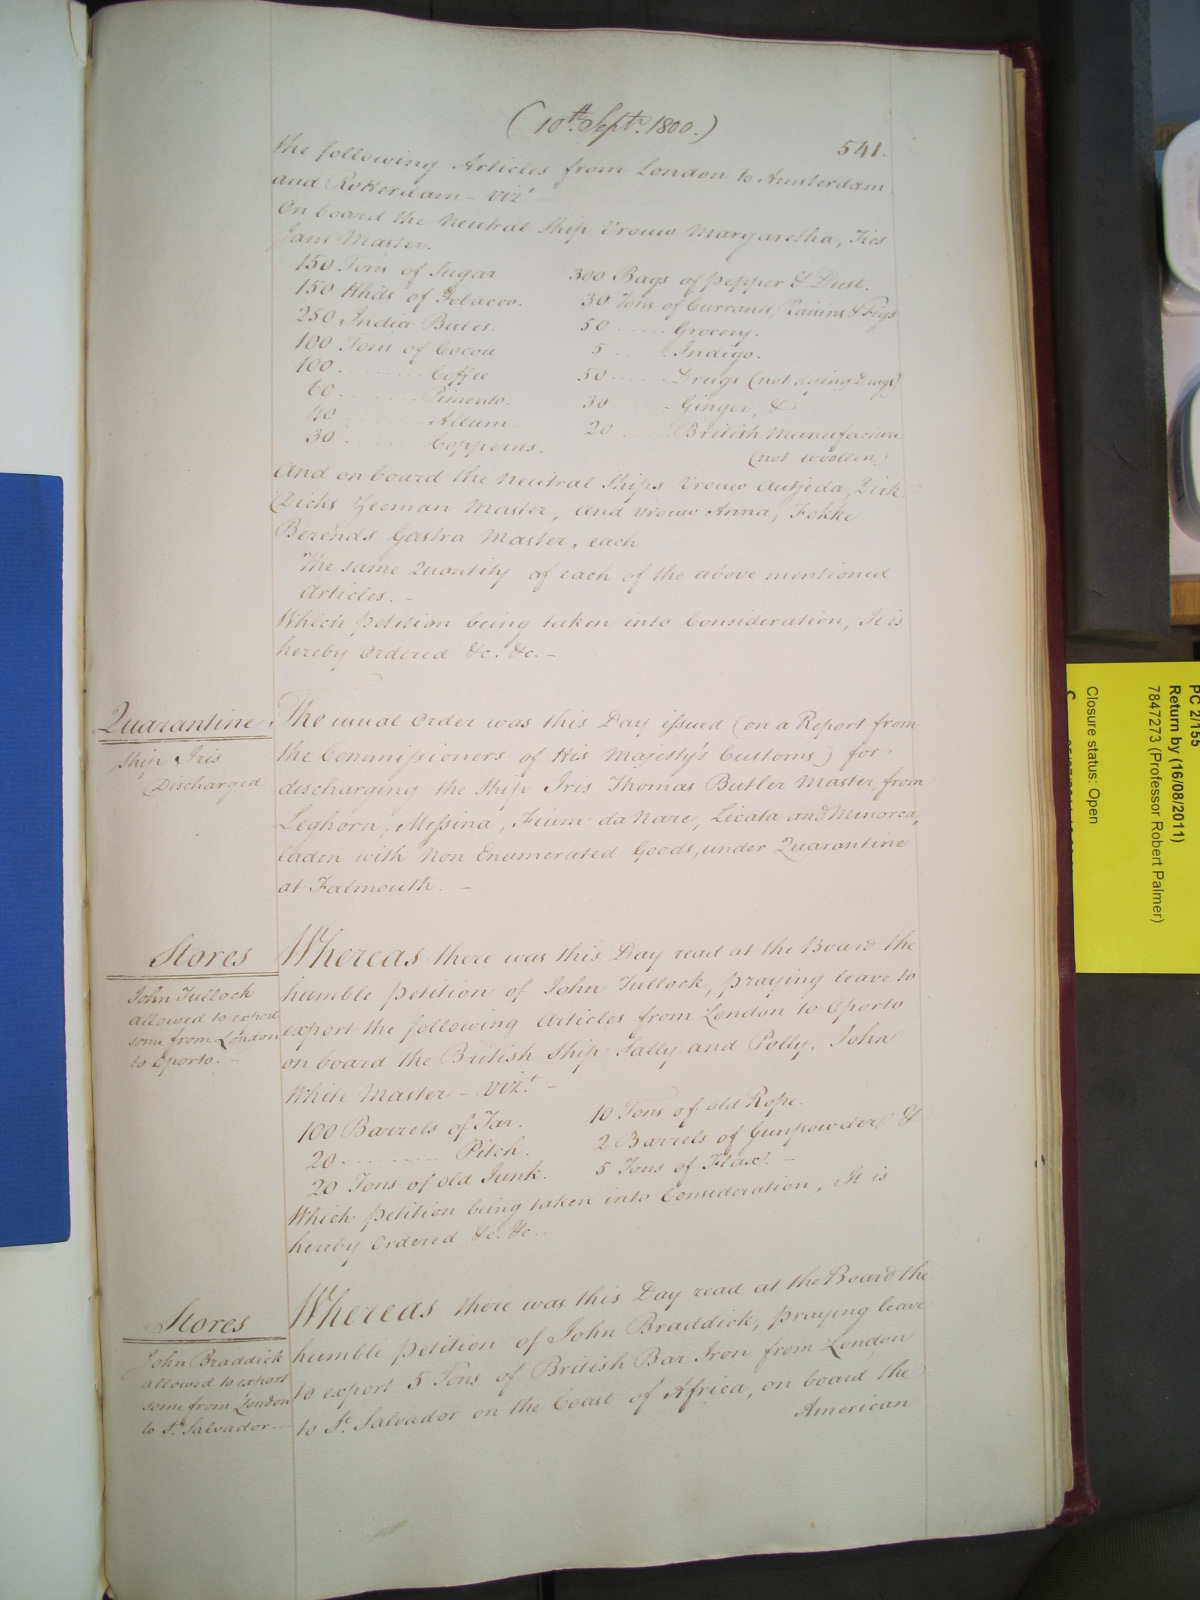 (10th. Septr. 1800.)
541.
the following Articles from London to Amsterdam
and Rotterdam - vizt. -
On board the Neutral Ship Vrouw Margaretha, Ties
Jans Master.
150 Tons of Sugar
150 Hhds of Tobacco.
250 India Bales.
100 Tons of Cocoa
100 ........ Coffee
60 ........ Pimento.
40 ........ Allum.
30 ........ Copperas.
300 Bags of pepper & Dust.
30 Tons of Currants, Raisins & Figs
50 ...... Grocery.
5 ...... Indigo.
50 ...... Drugs (not dying Drugs)
30 ...... Ginger, &
20 ...... British Manufacture
(not woollen)
And on board the Neutral Ships Vrouw Antjeda, Dirk
Dicks Yeoman Master, and Vrouw Anna, Fokke
Berends Gastra Master, each
The same Quantity of each of the above mentioned
Articles. -
Which petition being taken into Consideration, It is
hereby Ordered &c. &c. -
Quarantine
Ship Iris
Discharged
The usual Order was this Day issued (on a Report from
the Commissioners of His Majesty's Customs) for
discharging the Ship Iris Thomas Butler Master, from
Leghorn, Messina, Fium da Nare, Licata and Minorca,
laden with Non Enumerated Goods, under Quarantine
at Falmouth. -
Stores
John Tullock
allowed to export
some from London
to Oporto. -
Whereas there was this Day read at the Board the
humble petition of John Tullock, praying leave to
export the following Articles from London to Oporto
on board the British Ship Sally and Polly, John
White Master - vizt. -
100 Barrels of Tar.
20 ........ Pitch.
20 Tons of old Junk.
10 Tons of old Rope.
2 Barrels of Gunpowder, &
5 Tons of Flax. -
Which petition being taken into Consideration, It is
hereby Ordered &c. &c. -
Stores
John Braddick
allowed to export
some from London
to St. Salvador. -
Whereas there was this Day read at the Board the
humble petition of John Braddick, praying leave
to export 5 Tons of British Bar Iron from London
to St. Salvador on the Coast of Africa, on board the
American
PC 2/155
Return by (16/08/2011)
7847273 (Professor Robert Palmer)
Closure status: Open